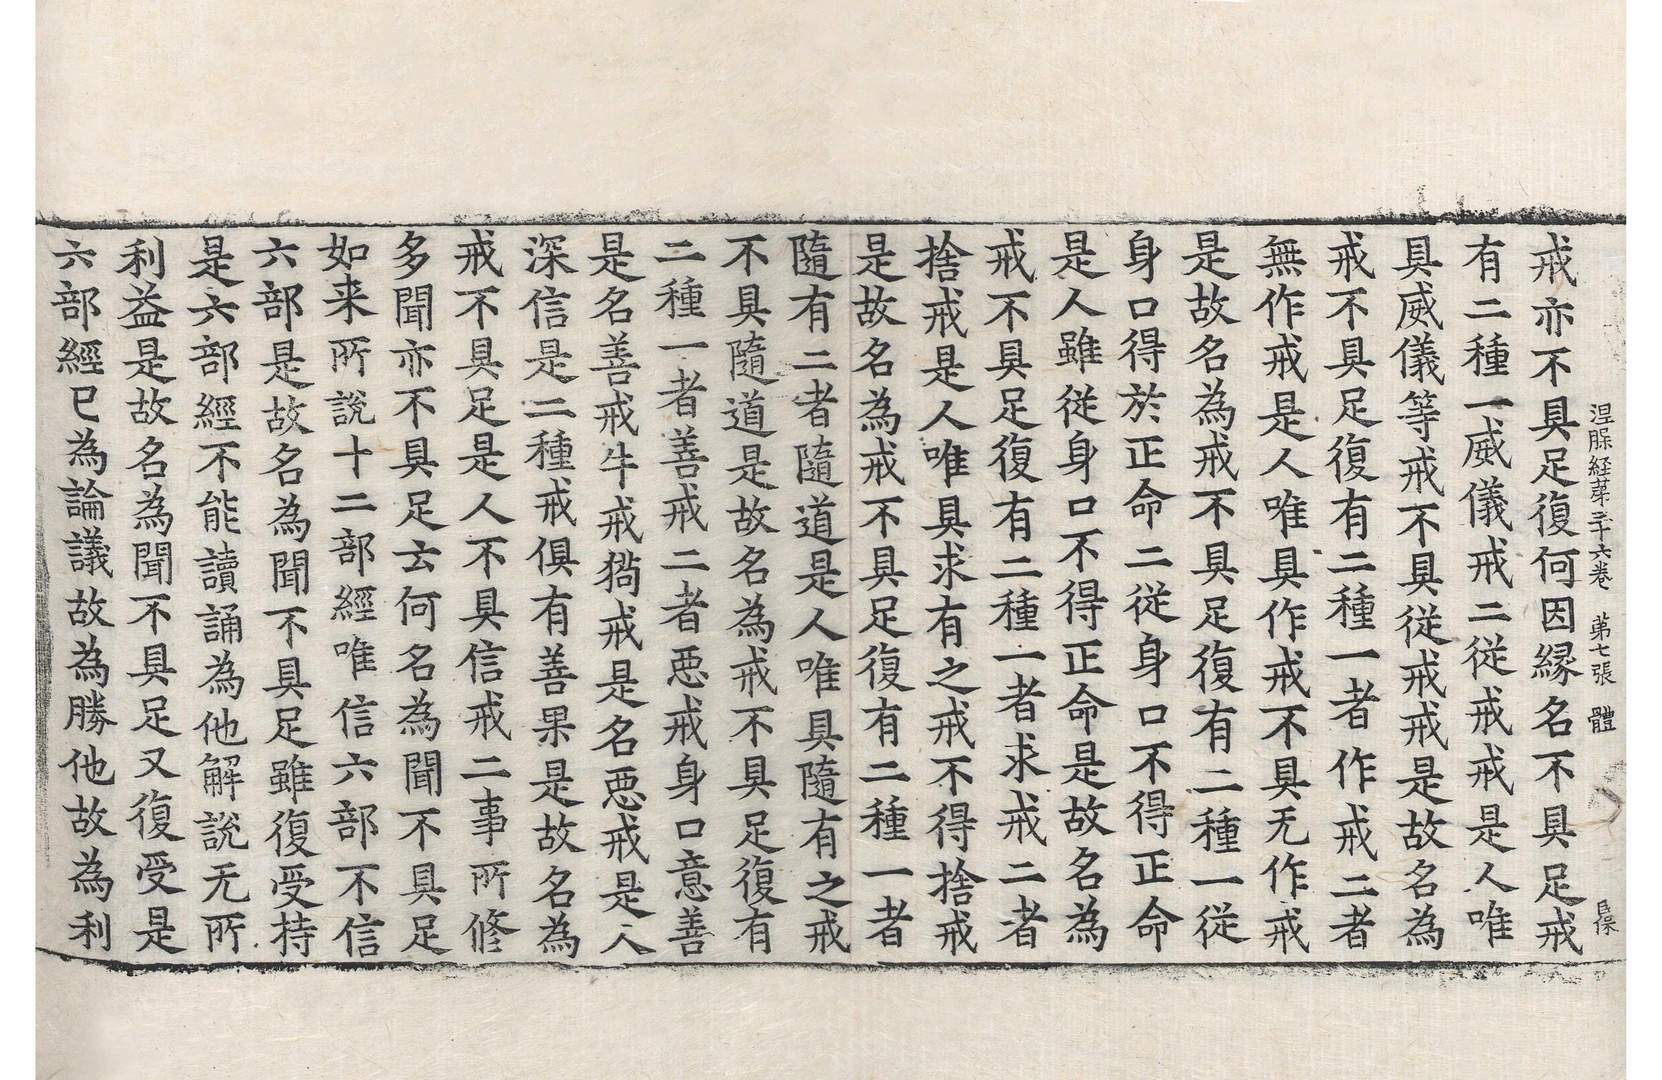 涅槃経苐三十六卷 苐七張 體
戒亦不具足復何因縁名不具足戒
有二種一威儀戒二従戒戒是人唯
具威儀等戒不具従戒戒是故名為
戒不具足復有二種一者作戒二者
無作戒是人唯具作戒不具无作戒
是故名為戒不具足復有二種一従
身口得於正命二従身口不得正命
是人雖従身口不得正命是故名為
戒不具足復有二種一者求戒二者
捨戒是人唯具求有之戒不得捨戒
是故名為戒不具足復有二種一者
隨有二者隨道是人唯具隨有之戒
不具隨道是故名為戒不具足復有
二種一者善戒二者惡戒身口意善
是名善戒牛戒狗戒是名惡戒是人
深信是二種戒俱有善果是故名為
戒不具足是人不具信戒二事所修
多聞亦不具足云何名為聞不具足
如来所說十二部經唯信六部不信
六部是故名為聞不具足雖復受持
是六部經不能讀誦為他解說无所
利益是故名為聞不具足又復受是
六部經已為論議故為勝他故為利